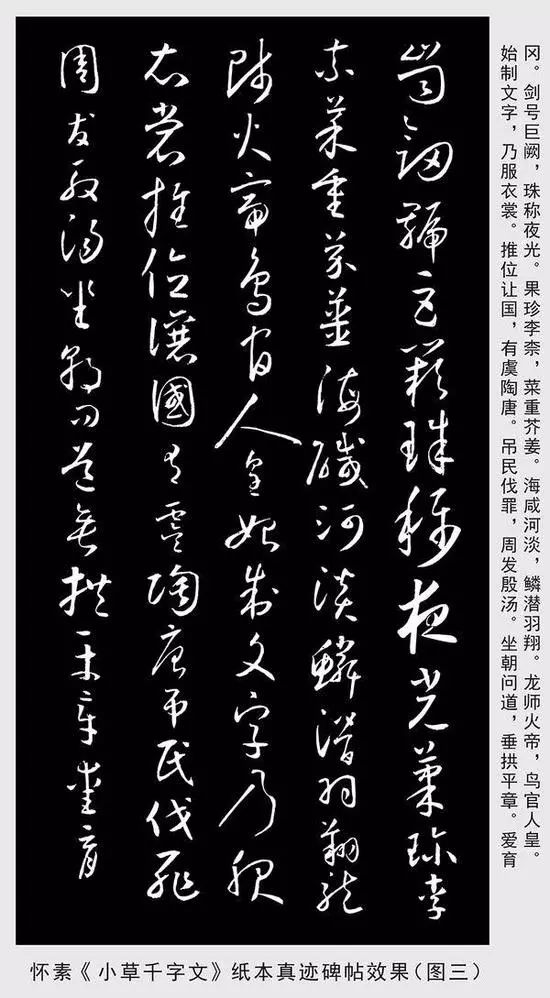 冈。剑号巨阙，珠称夜光。果珍李柰，菜重芥姜。海咸河淡，鳞潜羽翔。龙师火帝，鸟官人皇。
始制文字，乃服衣裳。推位让国，有虞陶唐。吊民伐罪，周发殷汤。坐朝问道，垂拱平章。爱育
崗劒號巨闕珠稱夜光菓珎李
柰菜重芥薑海醎河淡鱗潛羽翔龍
師火帝鳥官人皇始制文字乃服
衣裳推位讓國有虞陶唐吊民伐罪
周發殷湯坐朝問道垂拱平章愛育
怀素《小草千字文》纸本真迹碑帖效果(图三)